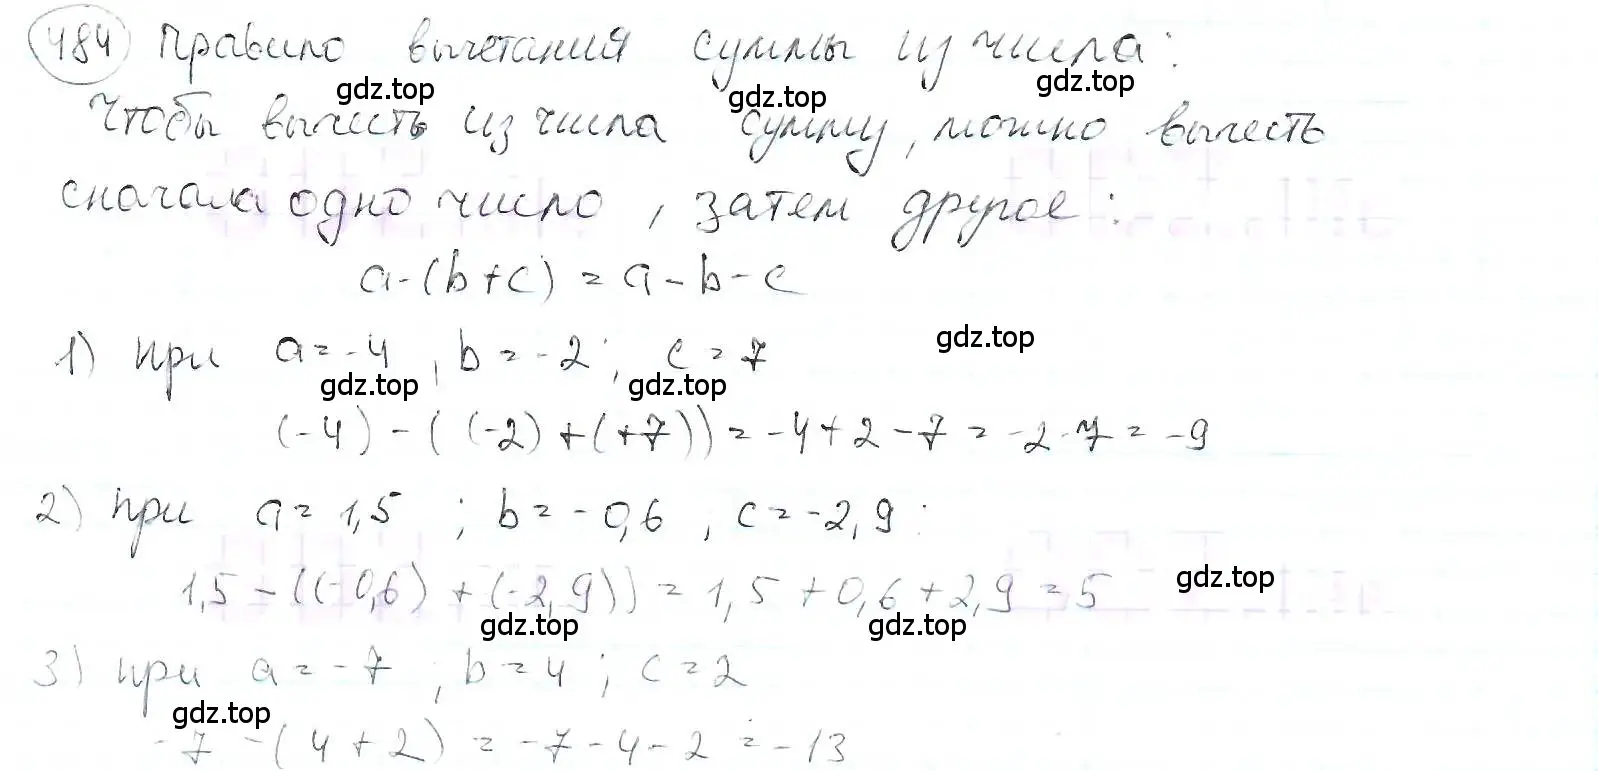 484 Правило вычетания суммы из числа:
Чтобы вычесть из числа сумму, можно вычесть
сначала одно число, затем другое:
a-(b+c) = a-b-c
1) при a=-4, b=-2; c=7
(-4)-((-2)+(+7))=-4+2-7=-2-7=-9
2) при a=1,5; b=-0,6, c=-2,9:
1,5-((-0,6)+(-2,9))=1,5+0,6+2,9=5
3) при a=-7; b=4; c=2
-7-(4+2)=-7-4-2=-13
gdz.top
gdz.top
gdz.top
gdz.top
gdz.top
gdz.top
gdz.top
gdz.top
gdz.top
gdz.top